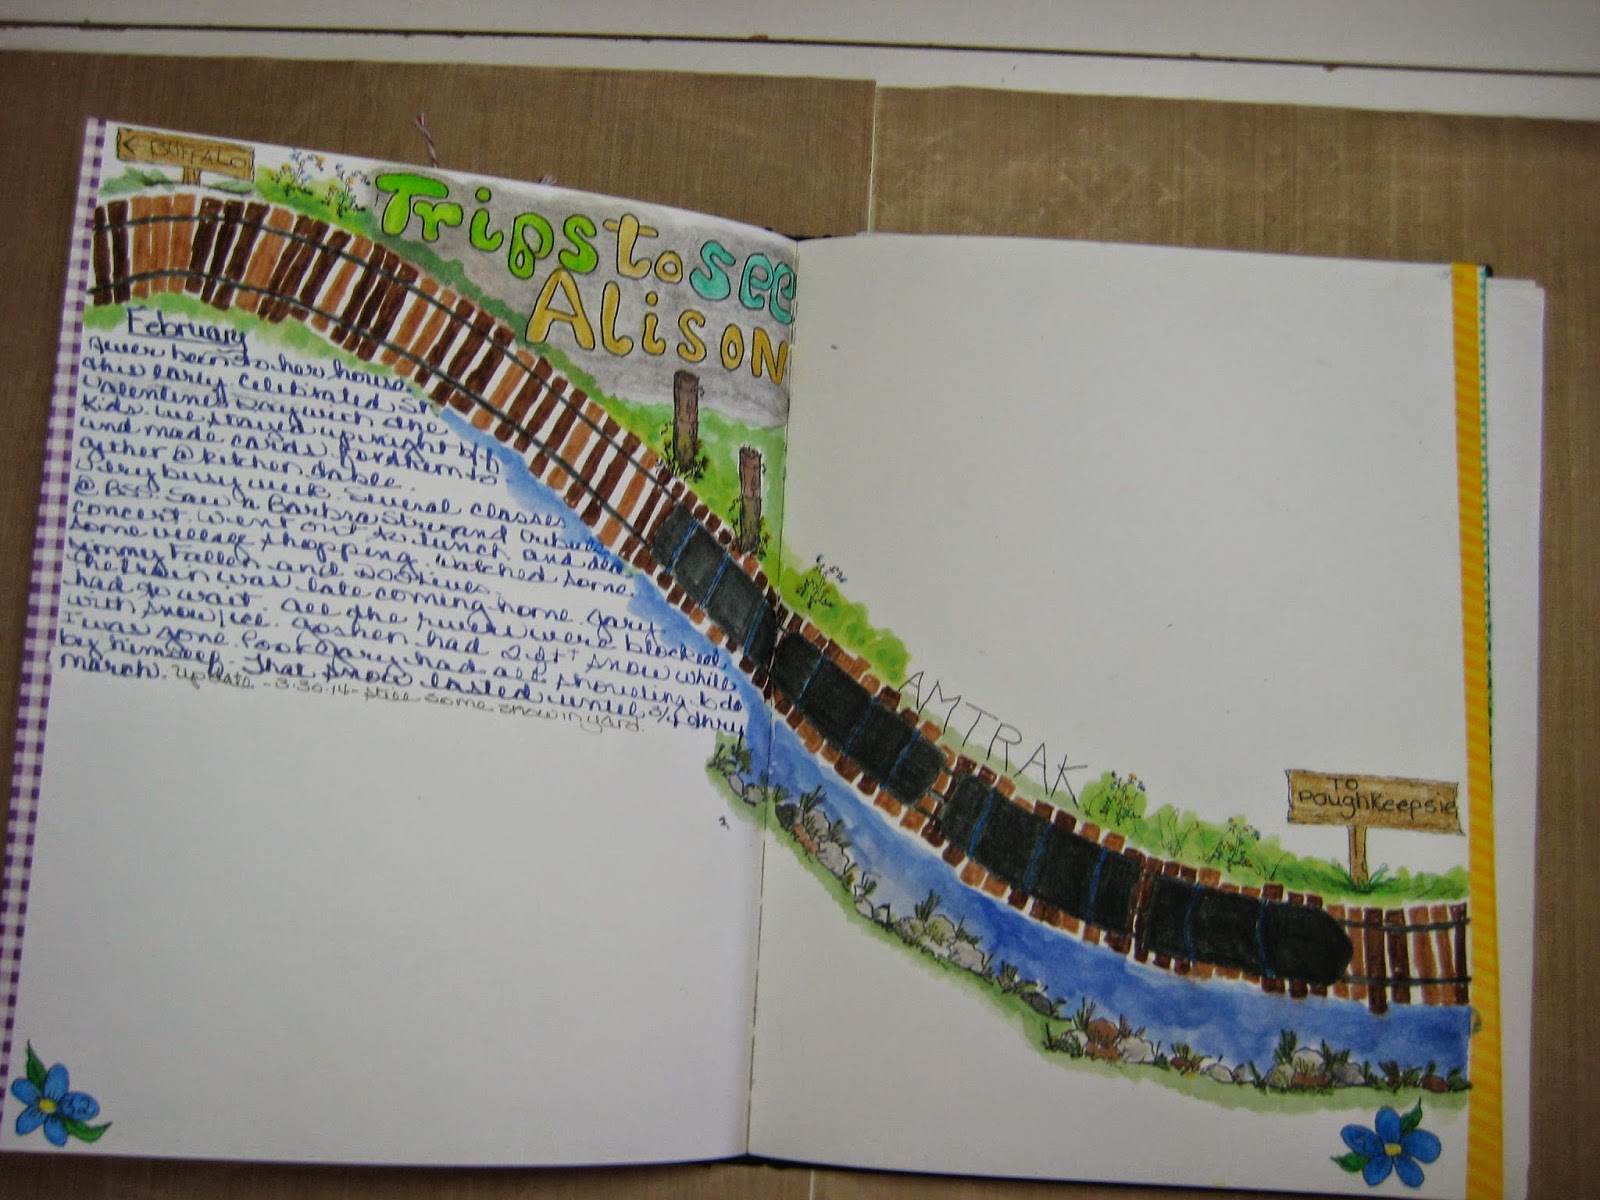 < BUFFALO
Trips to see
Alison
February
to her house
this early. Celebrated St
Valentine's Day with the
kids. We stayed up night
and made cards for them to
gether @ kitchen table.
Very busy week. Several classes
@ BSS. Saw a Barbra Streisand
concert. Went out to lunch and did
some village shopping. Watched some
Jimmy Fallon and
The train was late coming home. Gary
had to wait. All the were blocked
with snow/ice. Goshen had 2 ft+ snow while
I was gone. Poor Gary had all shoveling to do
by himself. That snow lasted until
March. update - 3-30-14 - still some snow in yard.
AMTRAK
TO
Poughkeepsie
32